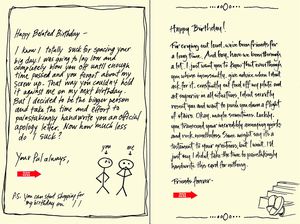 Happy Belated Birthday -
I know I totally suck for spacing your
big day! I was going to lay low and
completely blow you off until enough
time passed and you forgot about my
screw up. That way you couldn't hold
it against me on my next birthday.
But I decided to be the bigger person
and take the time and effort to
painstakingly handwrite you an official
apology letter. Now how much less
do I suck?
Your Pal always,
you
me
P.S. You can start shopping for
my birthday on
Happy Birthday!
For crying out loud, we've been friends for
a long time. And boy, have we been through
a lot. I just want you to know that even though
you whine incessantly, give advice when I don't
ask for it, constantly eat food off my plate and
act superior in all situations, I don't secretly
resent you and want to push you down a flight
of stairs. Okay, maybe sometimes. Luckily,
you transcend your incredibly annoying quirks
and rock nonetheless. Some might say it's a
testament to your greatness, but I won't. I'd
just say I didn't take the time to painstakingly
handwrite this card for nothing.
Friends forever,